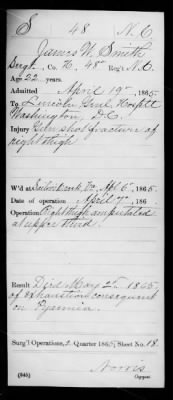 S 48 N. C.
James W. Smith
Sergt., Co. K, 48" Reg't N.C.
Age 22 years.
Admitted April 19", 1865
To Lincoln Genl. Hospitl
Washington, D.C.
Injury Gun shot fracture of
right thigh
W'd at Sailors Creek, Va. Apl 6", 1865.
Date of operation April 7", 186
Operation Right thigh amputated
at upper third.
Result Died May 2d, 1865,
of exhaustion consequent
on Pyaemia.
Surg'l Operations, 2 Quarter 1865, Sheet No. 18.
Norris
(845) Copyist.